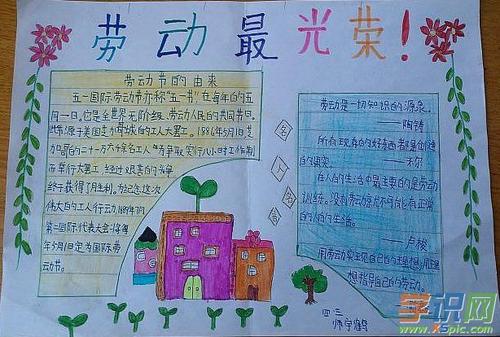 劳动最光荣!
劳动节的由来
五一国际劳动节亦称"五一节",在每年的五
月一日。它是全世界无阶级、劳动人民的共同节日。
源于美国芝加哥城的工人大罢工。1886年5月1日,芝
加哥的二十一万六千余名工人为争取实行八小时工作制
而举行大罢工,经过艰苦的
终于获得了胜利。为纪念这次
伟大的工人行动,1889年的
第二国际代表大会将每
年5月1日定为国际劳
动节。
名人名言
劳动是一切知识的源泉。
——陶铸
所有现存的好东西都是创造
的果实。——米尔
在人的生活中最主要的是劳动
训练。没有劳动就不可能有正常
的人的生活。
——卢梭
想指导自己的劳动。
四三
学识网
www.XSpic.com